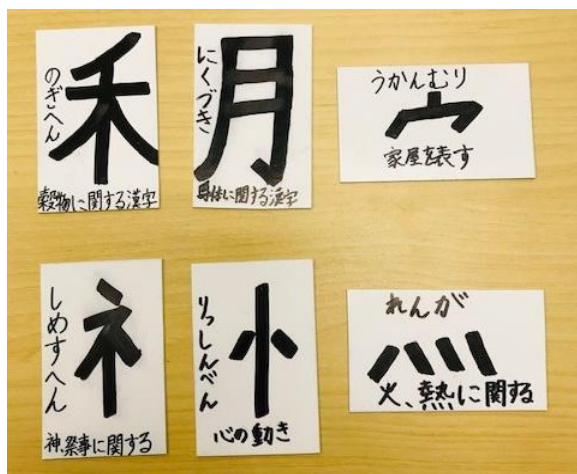 のぎへん
禾
穀物に関する漢字
にくづき
月
身体に関する漢字
うかんむり
宀
家屋を表す
しめすへん
礻
神、祭事に関する
りっしんべん
忄
心の動き
れんが
灬
火、熱に関する